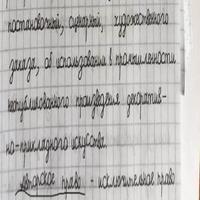 постановочный, сценарный, художественного
заказа, об использовании в промышленности
неопубликованного произведения декоратив-
но-прикладного искусства.
авторское право - исключительное право